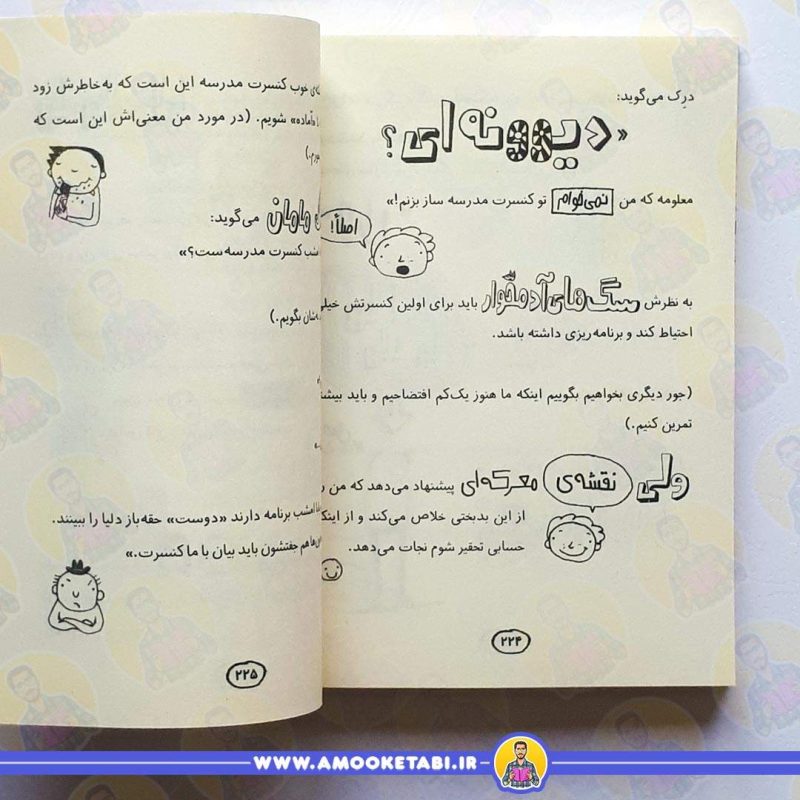 درک می‌گوید:
«دیوونه‌ای؟
معلومه که من نمی‌خوام تو کنسرت مدرسه ساز بزنم!»
اصلاً!
به نظرش سگ‌های آدمخوار باید برای اولین کنسرتش خیلی
احتیاط کند و برنامه‌ریزی داشته باشد.
(جور دیگری بخواهیم بگوییم اینکه ما هنوز یک‌کم افتضاحیم و باید بیشتر
تمرین کنیم.)
ولی نقشه‌ی معرکه‌ای پیشنهاد می‌دهد که من
از این بدبختی خلاص می‌کند و از
حسابی تحقیر شوم نجات می‌دهد.
۲۲۴
خوب کنسرت مدرسه این است که به‌خاطرش زود
«آماده» شویم. (در مورد من معنی‌اش این است که
مامان می‌گوید:
کنسرت مدرسه‌ست؟»
بگویم.)
امشب برنامه دارند «دوست» حقه‌باز دلیا را ببینند.
هم جفتشون باید بیان با ما کنسرت.»
۲۲۵
WWW.AMOOKETABI.IR